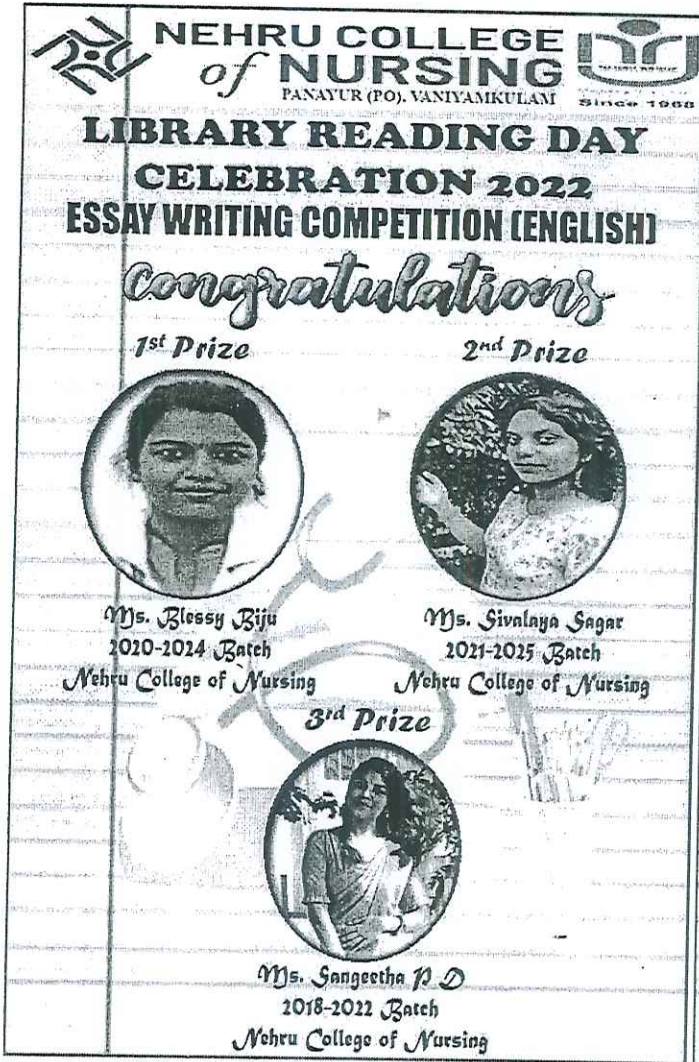 NEHRU COLLEGE
of NURSING
PANAYUR (PO). VANIYAMKULAM
Since 1968
LIBRARY READING DAY
CELEBRATION 2022
ESSAY WRITING COMPETITION (ENGLISH)
congratulations
1st Prize
2nd Prize
Ms. Blessy Biju
2020-2024 Batch
Nehru College of Nursing
Ms. Sivalaya Sagar
2021-2025 Batch
Nehru College of Nursing
3rd Prize
Ms. Sangeetha P D
2018-2022 Batch
Nehru College of Nursing